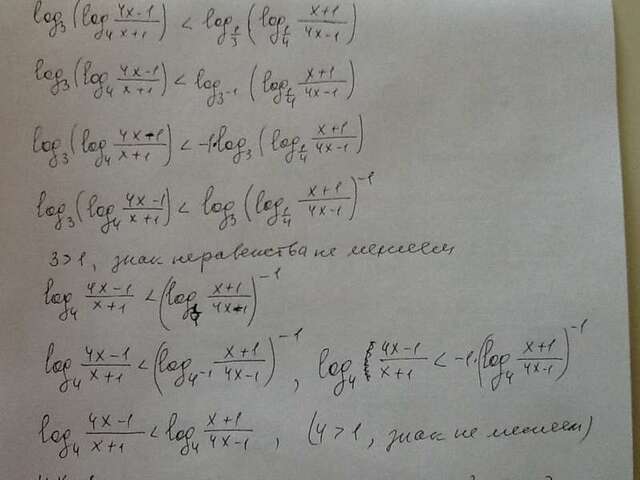 log₃(log₄ (4x-1)/(x+1)) < log_{1/3}(log_{1/4} (x+1)/(4x-1))
log₃(log₄ (4x-1)/(x+1)) < log_{3^{-1}}(log_{1/4} (x+1)/(4x-1))
log₃(log₄ (4x-1)/(x+1)) < -1·log₃(log_{1/4} (x+1)/(4x-1))
log₃(log₄ (4x-1)/(x+1)) < log₃(log_{1/4} (x+1)/(4x-1))^{-1}
3>1, знак неравенства не меняем
log₄ (4x-1)/(x+1) < (log_{1/4} (x+1)/(4x-1))^{-1}
log₄ (4x-1)/(x+1) < (log_{4^{-1}} (x+1)/(4x-1))^{-1}, log₄ (4x-1)/(x+1) < -1·(log₄ (x+1)/(4x-1))^{-1}
log₄ (4x-1)/(x+1) < log₄ (x+1)/(4x-1), (4>1, знак не меняем)